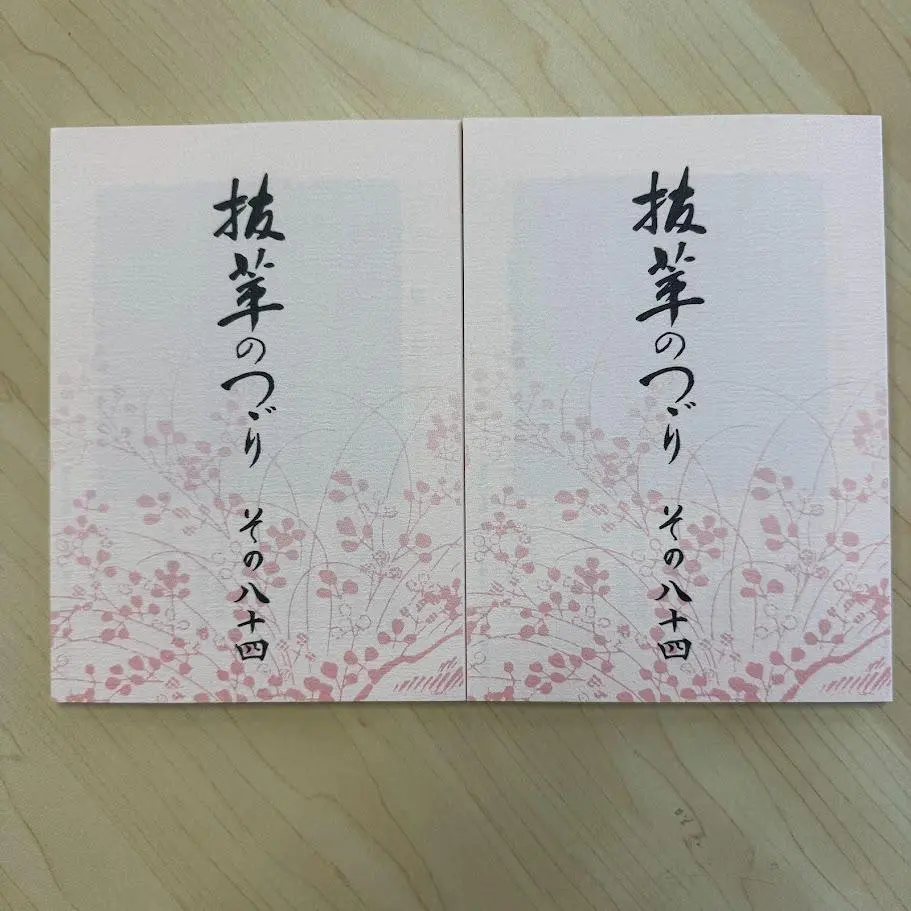 抜萃のつゞり その八十四
抜萃のつゞり その八十四